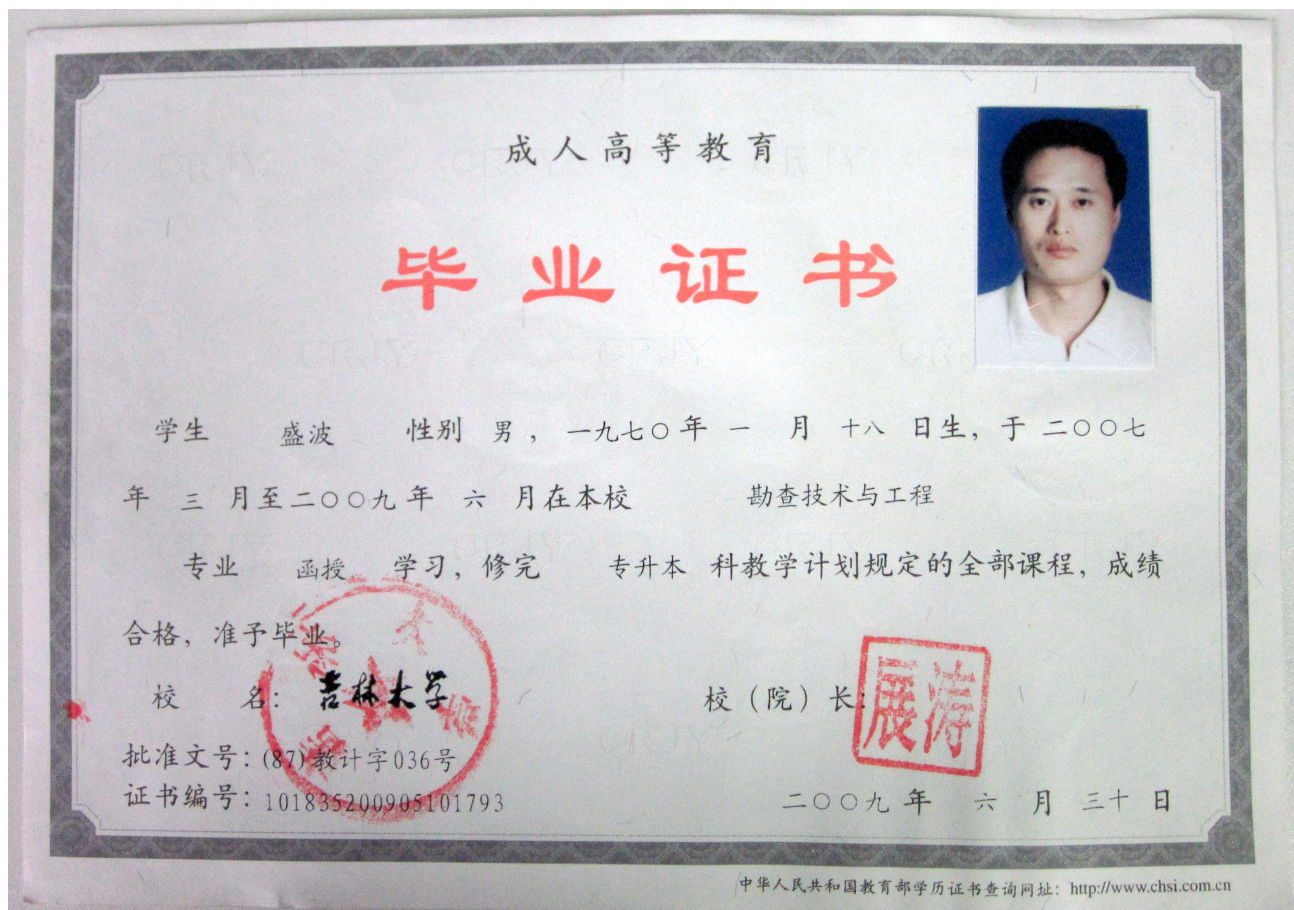 成人高等教育
毕业证书
学生 盛波 性别 男，一九七〇年 一 月 十八 日生，于 二〇〇七
年 三 月至二〇〇九年 六 月在本校 勘查技术与工程
专业 函授 学习，修完 专升本 科教学计划规定的全部课程，成绩
合格，准予毕业。
校 名：吉林大学 校（院）长：
展涛
批准文号：(87)教计字036号
证书编号：101835200905101793 二〇〇九 年 六 月 三十 日
中华人民共和国教育部学历证书查询网址：http://www.chsi.com.cn